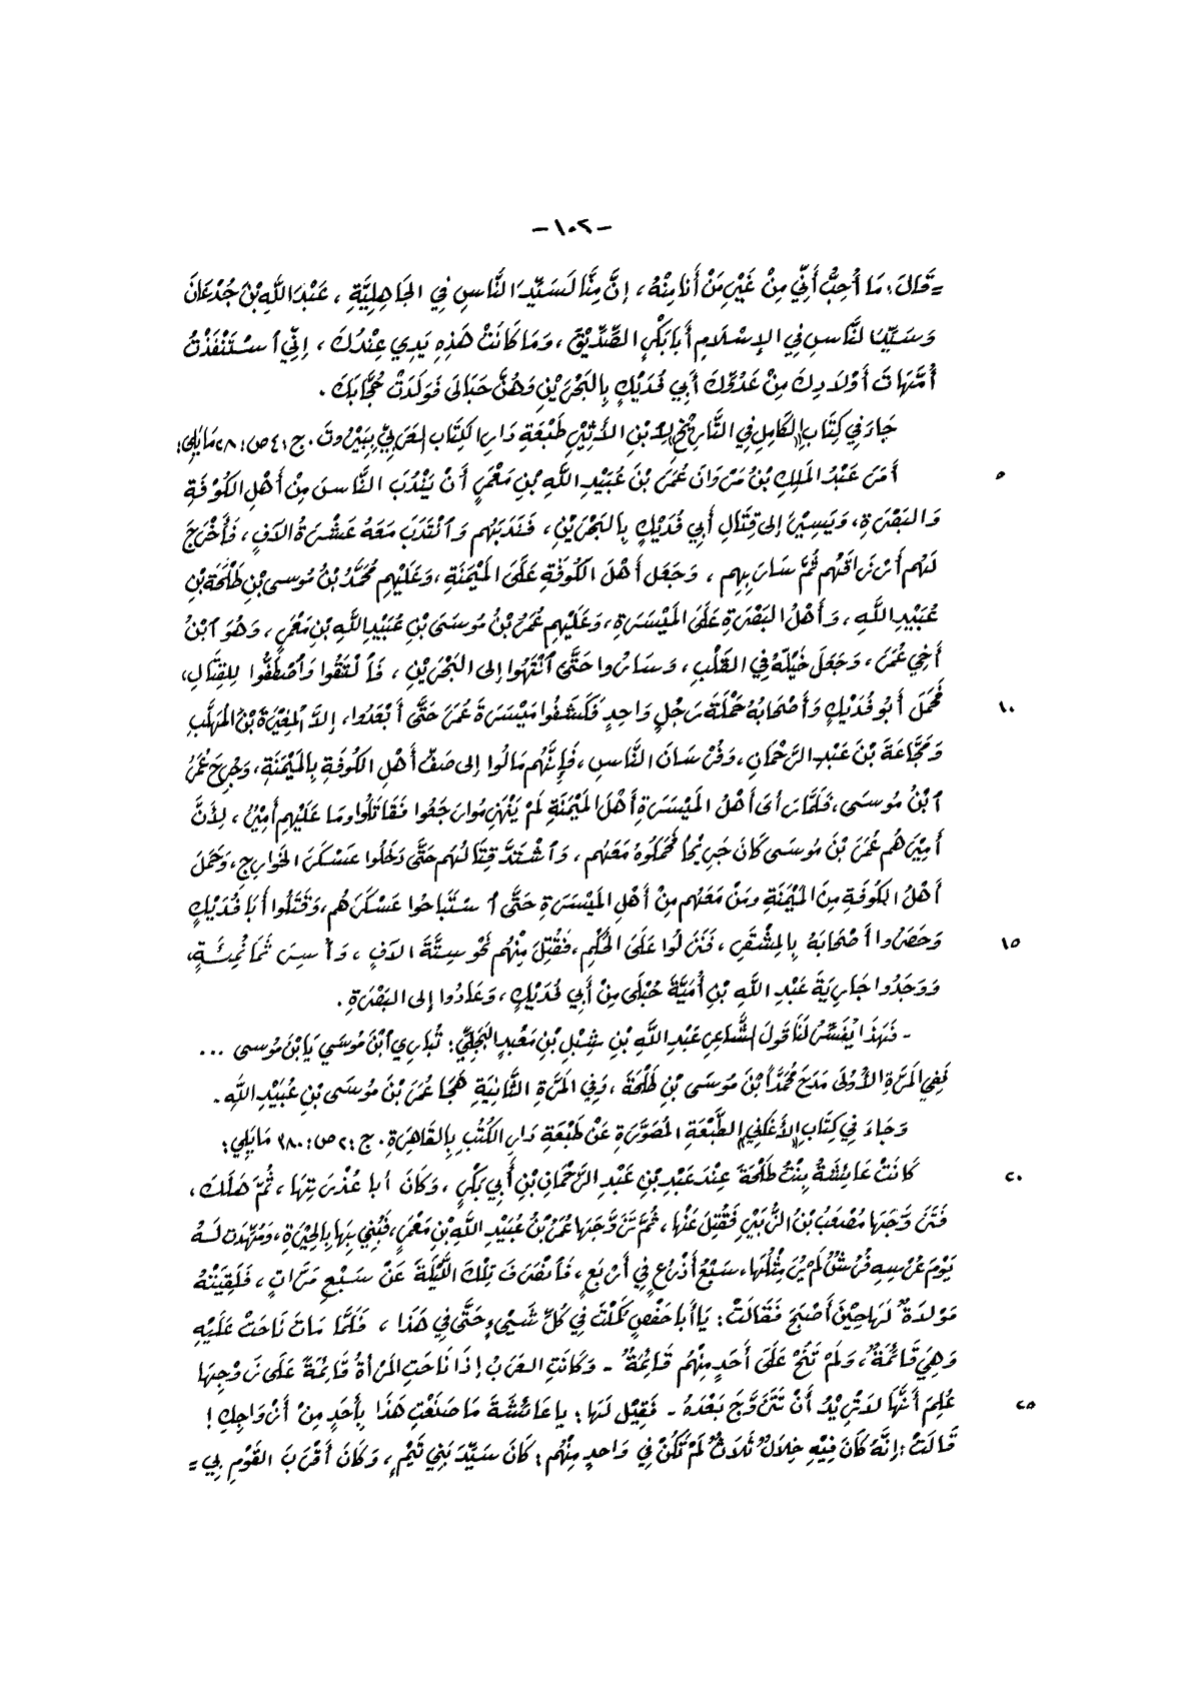 -١٠٢-
= قَالَ: مَا أُحِبُّ أَنِّي مِنْ غَيْرِ مَنْ أَنَا مِنْهُ، إِنَّ مِنَّا لَسَيِّدَ النَّاسِ فِي الجَاهِلِيَّةِ، عَبْدَ اللَّهِ بْنَ جُدْعَانَ
وَسَيِّدَ النَّاسِ فِي الإِسْلَامِ أَبَا بَكْرٍ الصِّدِّيقَ، وَمَا كَانَتْ هَذِهِ يَدِي عِنْدَكَ، إِنِّي ٱسْتَنْقَذْتُ
أُمَّهَاتِ أَوْلَادِكَ مِنْ عَدُوِّكَ أَبِي فُدَيْكٍ بِالبَحْرَيْنِ وَهُنَّ حَبَالَى فَوَلَدَتْ حُجَّابَكَ.
جَاءَ فِي كِتَابِ «الكَامِلِ فِي التَّارِيْخِ» لِٱبْنِ الأَثِيْرِ طَبْعَةِ دَارِ الكِتَابِ العَرَبِيِّ بِبَيْرُوتَ. ج: ٤ ص: ٢٨ مَا يَلِي:
٥ أَمَرَ عَبْدُ المَلِكِ بْنُ مَرْوَانَ عُمَرَ بْنَ عُبَيْدِ اللَّهِ بْنِ مَعْمَرٍ أَنْ يَنْدُبَ النَّاسَ مِنْ أَهْلِ الكُوفَةِ
وَالبَصْرَةِ، وَيَسِيْرُ إِلى قِتَالِ أَبِي فُدَيْكٍ بِالبَحْرَيْنِ، فَنَدَبَهُم وَٱنْتَدَبَ مَعَهُ عَشْرَةُ آلاَفٍ، فَأَخْرَجَ
لَهُم أَرْزَاقَهُم ثُمَّ سَارَ بِهِم، وَجَعَلَ أَهْلَ الكُوفَةِ عَلَى المَيْمَنَةِ، وَعَلَيْهِم مُحَمَّدُ بْنُ مُوسى بْنِ طَلْحَةَ بْنِ
عُبَيْدِ اللَّهِ، وَأَهْلُ البَصْرَةِ عَلَى المَيْسَرَةِ، وَعَلَيْهِم عُمَرُ بْنُ مُوسَى بْنِ عُبَيْدِ اللَّهِ بْنِ مَعْمَرٍ، وَهُوَ ٱبْنُ
أَخِي عُمَرَ، وَجَعَلَ خَيْلَهُ فِي القَلْبِ، وَسَارُوا حَتَّى ٱنْتَهُوا إِلى البَحْرَيْنِ، فَٱلْتَقُوا وَٱصْطَفُّوا لِلقِتَالِ،
١٠ فَحَمَلَ أَبُو فُدَيْكٍ وَأَصْحَابُهُ حَمْلَةَ رَجُلٍ وَاحِدٍ فَكَشَفُوا مَيْسَرَةَ عُمَرَ حَتَّى أَبْعَدُوا، إِلاَّ المُغِيْرَةَ بْنَ المُهَلَّبِ
وَمُجَّاعَةَ بْنَ عَبْدِ الرَّحْمَانِ، وَفُرْسَانَ النَّاسِ، فَإِنَّهُم مَالُوا إِلى صَفِّ أَهْلِ الكُوفَةِ بِالمَيْمَنَةِ، وَجُرِحَ عُمَرُ
ٱبْنُ مُوسَى، فَلَمَّا رَأَى أَهْلُ المَيْسَرَةِ أَهْلَ المَيْمَنَةِ لَمْ يَنْهَزِمُوا رَجَعُوا فَقَاتَلُوا وَمَا عَلَيْهِم أَمِيْرٌ، لِأَنَّ
أَمِيْرَهُم عُمَرَ بْنَ مُوسَى كَانَ جَرِيْحًا فَحَمَلُوهُ مَعَهُم، وَٱشْتَدَّ قِتَالُهُم حَتَّى دَخَلُوا عَسْكَرَ الخَوَارِجِ، وَحَمَلَ
أَهْلُ الكُوفَةِ مِنَ المَيْمَنَةِ وَمَنْ مَعَهُم مِنْ أَهْلِ المَيْسَرَةِ حَتَّى ٱسْتَبَاحُوا عَسْكَرَهُم، وَقَتَلُوا أَبَا فُدَيْكٍ
١٥ وَحَصَرُوا أَصْحَابَهُ بِالمُشَقَّرِ، فَنَزَلُوا عَلَى الحُكْمِ، فَقُتِلَ مِنْهُم نَحْوَ سِتَّةَ آلاَفٍ، وَأُسِرَ ثَمَانُمِئَةٍ،
وَوَجَدُوا جَارِيَةَ عَبْدِ اللَّهِ بْنِ أُمَيَّةَ حُبْلَى مِنْ أَبِي فُدَيْكٍ، وَعَادُوا إِلى البَصْرَةِ.
- فَهَذَا يُفَسِّرُ لَنَا قَوْلَ الشَّاعِرِ عَبْدِ اللَّهِ بْنِ شِبْلِ بْنِ مَعْبَدٍ البَجَلِيِّ: تُبَارِي ٱبْنَ مُوسَى يَا بْنَ مُوسى ...
فَفِي المَرَّةِ الأُوْلَى مَدَحَ مُحَمَّدَ ٱبْنَ مُوسَى بْنِ طَلْحَةَ، وَفِي المَرَّةِ الثَّانِيَةِ هَجَا عُمَرَ بْنَ مُوسَى بْنِ عُبَيْدِ اللَّهِ.
وَجَاءَ فِي كِتَابِ «الأَغَانِي» الطَّبْعَةِ المُصَوَّرَةِ عَنْ طَبْعَةِ دَارِ الكُتُبِ بِالقَاهِرَةِ. ج: ٢ ص: ١٨٠ مَا يَلِي:
٢٠ كَانَتْ عَائِشَةُ بِنْتُ طَلْحَةَ عِنْدَ عَبْدِ بْنِ عَبْدِ الرَّحْمَانِ بْنِ أَبِي بَكْرٍ، وَكَانَ أَبا عُذْرَتِهَا، ثُمَّ هَلَكَ،
فَتَزَوَّجَهَا مُصْعَبُ بْنُ الزُّبَيْرِ فَقُتِلَ عَنْهَا، ثُمَّ تَزَوَّجَهَا عُمَرُ بْنُ عُبَيْدِ اللَّهِ بْنِ مَعْمَرٍ، فَبُنِي بِهَا بِالحِيْرَةِ، وَمُهِّدَت لَهُ
يَوْمَ عُرْسِهِ فُرُشٌ لَمْ يُرَ مِثْلُهَا، سَبْعُ أَذْرُعٍ فِي أَرْبَعٍ، فَٱنْصَرَفَ تِلْكَ اللَّيْلَةَ عَنْ سَبْعِ مَرَّاتٍ، فَلَقِيَتْهُ
مَوْلدَةٌ لَهَا حِيْنَ أَصْبَحَ فَقَالَتْ: يَا أَبا حَفْصٍ كَمُلْتَ فِي كُلِّ شَيْىءٍ حَتَّى فِي هَذَا، فَلَمَّا مَاتَ نَاحَتْ عَلَيْهِ
وَهِيَ قَائِمَةٌ، وَلَمْ تَنُحْ عَلَى أَحَدٍ مِنْهُم قَائِمَةً - وَكَانَتِ العَرَبُ إِذَا نَاحَتِ المَرْأَةُ قَائِمَةً عَلَى زَوْجِهَا
٢٥ عُلِمَ أَنَّهَا لاَ تُرِيْدُ أَنْ تَتَزَوَّجَ بَعْدَهُ - فَقِيْلَ لَهَا: يا عَائِشَةَ مَا صَنَعْتِ هَذَا بِأَحَدٍ مِنْ أَزْوَاجِكِ!
قَالَتْ: إِنَّهُ كَانَ فِيْهِ خِلَالٌ ثَلَاثٌ لَمْ تَكُنْ فِي وَاحِدٍ مِنْهُم: كَانَ سَيِّدَ بَنِي تَيْمٍ، وَكَانَ أَقْرَبَ القَوْمِ بِي =